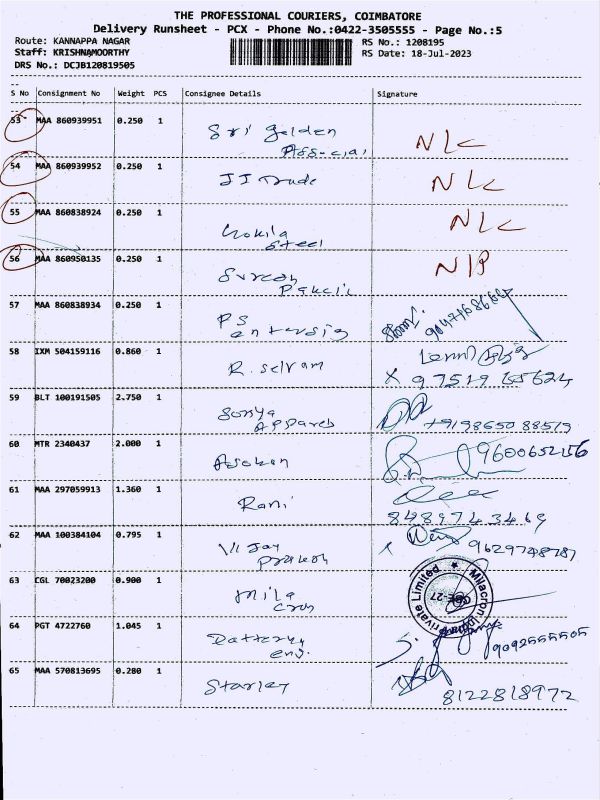 THE PROFESSIONAL COURIERS, COIMBATORE
Delivery Runsheet - PCX - Phone No.:0422-3505555 - Page No.:5
Route: KANNAPPA NAGAR
RS No.: 1208195
Staff: KRISHNAMOORTHY
RS Date: 18-Jul-2023
DRS No.: DCJB120819505
S No Consignment No Weight PCS Consignee Details Signature
53 MAA 860939951 0.250 1 Sri Golden NLC
54 MAA 860939952 0.250 1 JJ Trade NLC
55 MAA 860838924 0.250 1 NLC
Steel
56 MAA 860950135 0.250 1 N/P
57 MAA 860838934 0.250 1 PS
58 IXM 504159116 0.860 1 R. Selvam
X 97519 65624
59 BLT 100191505 2.750 1 Sonya
+9198650 88519
60 MTR 2340437 2.000 1 Asokan
61 MAA 297059913 1.360 1 Rani
8489743469
62 MAA 100384104 0.795 1 Vijay
63 CGL 70023200 0.900 1 Mila
Cron
Milacron India Private Limited
64 PGT 4722760 1.045 1
9092555505
65 MAA 570813695 0.280 1 Stanley
8122818972